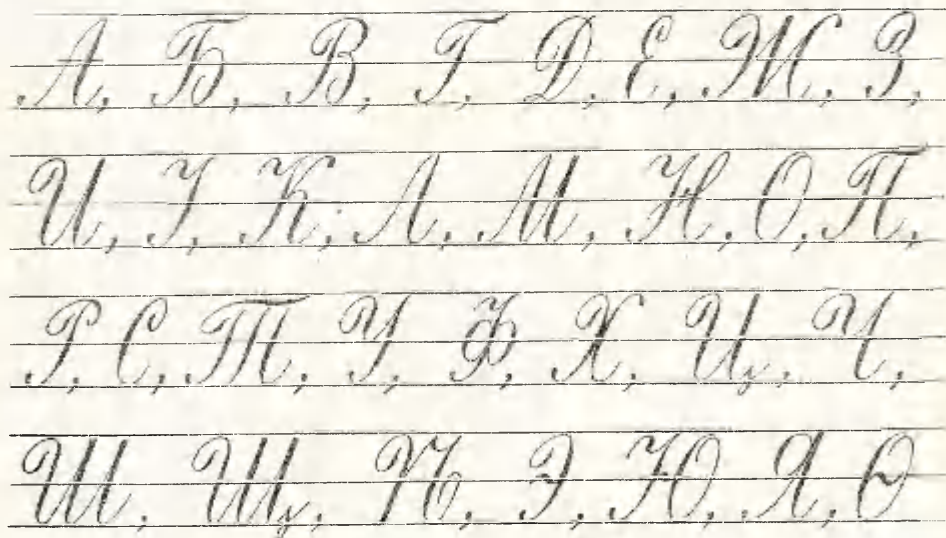 А, Б, В, Г, Д, Е, Ж, З,
И, І, К, Л, М, Н, О, П,
Р, С, Т, У, Ф, Х, Ц, Ч,
Ш, Щ, Ѣ, Э, Ю, Я, Ѳ